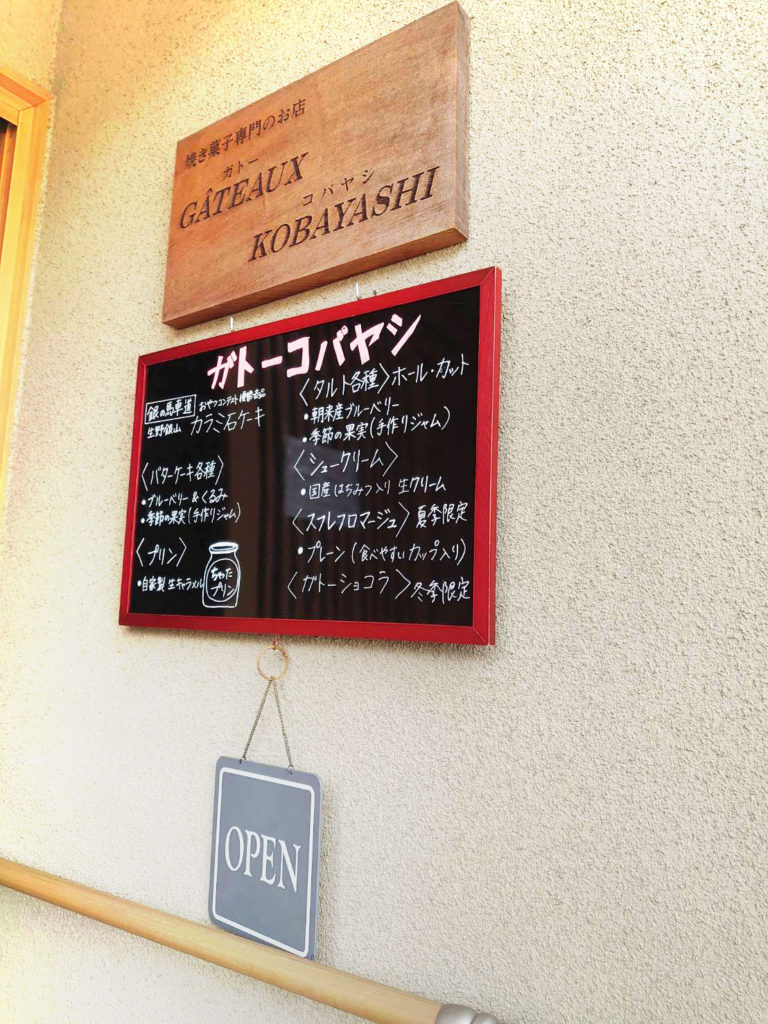 焼き菓子専門のお店
ガトー
GÂTEAUX
コバヤシ
KOBAYASHI
ガトーコバヤシ
銀の馬車道 おやつコンテスト
生野銀山 カラミ石ケーキ
〈バターケーキ各種〉
•ブルーベリー & くるみ
•季節の果実(手作りジャム)
〈プリン〉
•自家製 生キャラメル
ちゃった
プリン
〈タルト各種〉ホール・カット
•朝来産ブルーベリー
•季節の果実(手作りジャム)
〈シュークリーム〉
•国産はちみつ入り 生クリーム
〈スフレフロマージュ〉夏季限定
•プレーン(食べやすいカップ入り)
〈ガトーショコラ〉冬季限定
OPEN